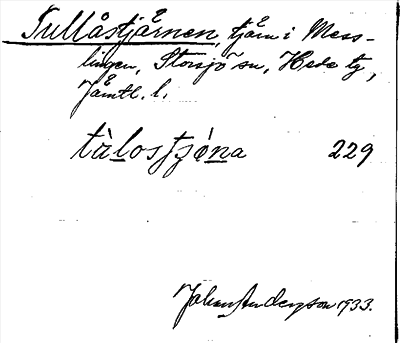 Tullåstjärnen, tjärn i Mess-
lingen, Storsjö sn, Hede tg,
Jämtl. l.
tàlostjǫ́na 229
Johan Anderson 1933.